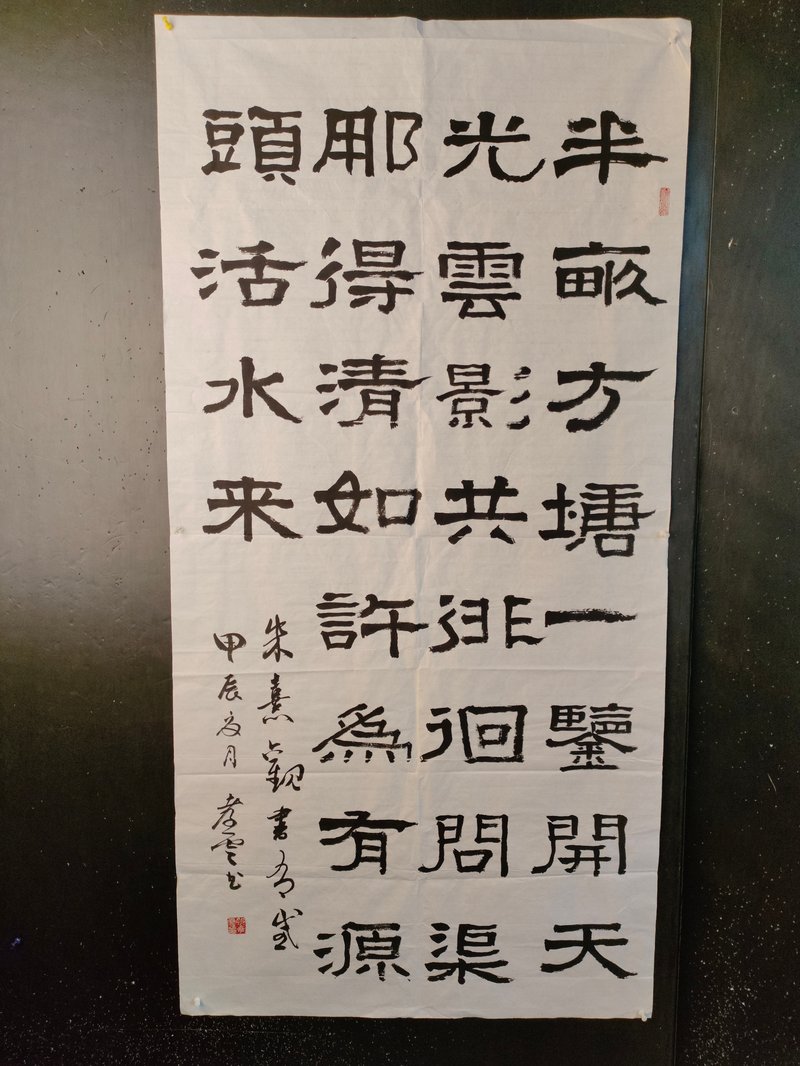 半畝方塘一鑒開天
光雲影共徘徊問渠
那得清如許為有源
頭活水来
朱熹觀書有感
甲辰夏月 孝雲书